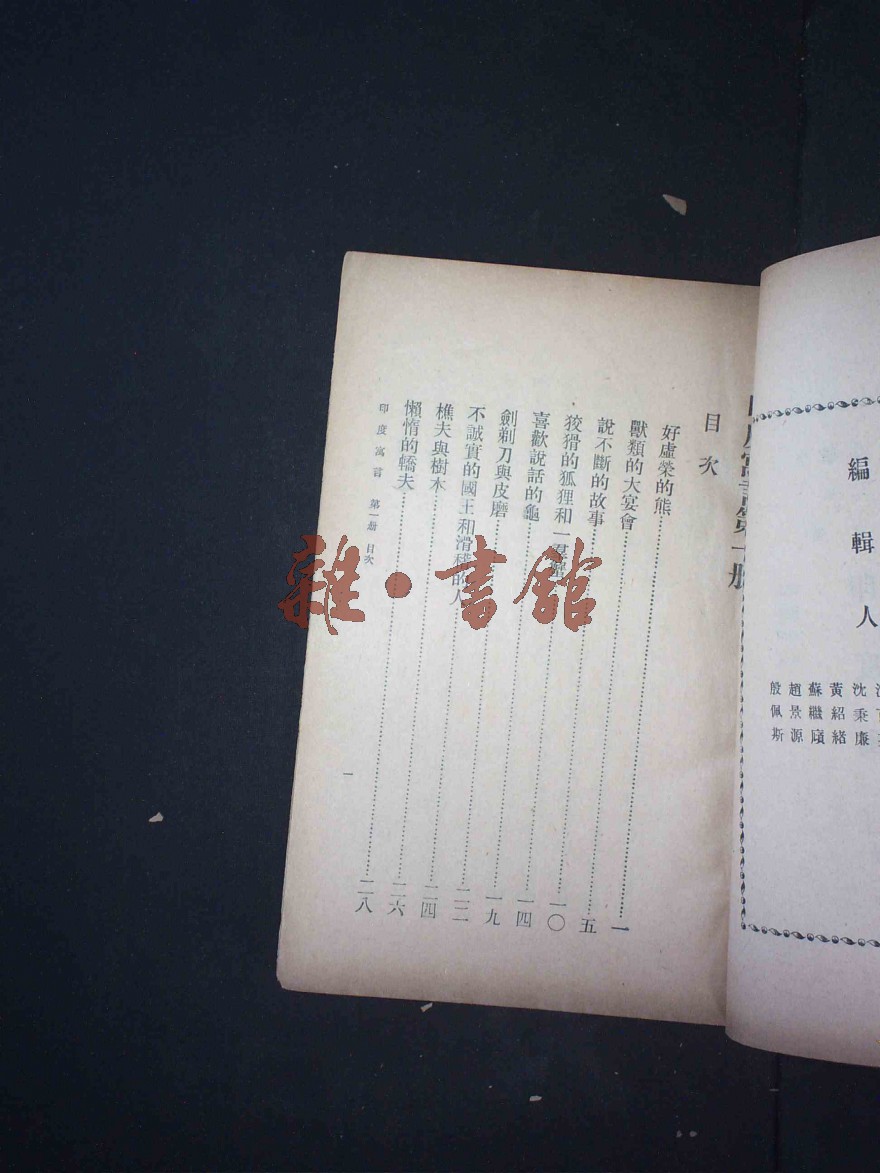 編輯人
沈秉廉
黃紹緒
蘇繼廎
趙景源
殷佩斯
寓言第一冊
目次
好虛榮的熊……一
獸類的大宴會……五
說不斷的故事……一〇
狡猾的狐狸和一羣……一四
喜歡說話的龜……一九
劍剃刀與皮磨……二二
不誠實的國王和滑稽的人……二四
樵夫與樹木……二六
懶惰的轎夫……二八
印度寓言 第一冊 目次
一
雜·書館